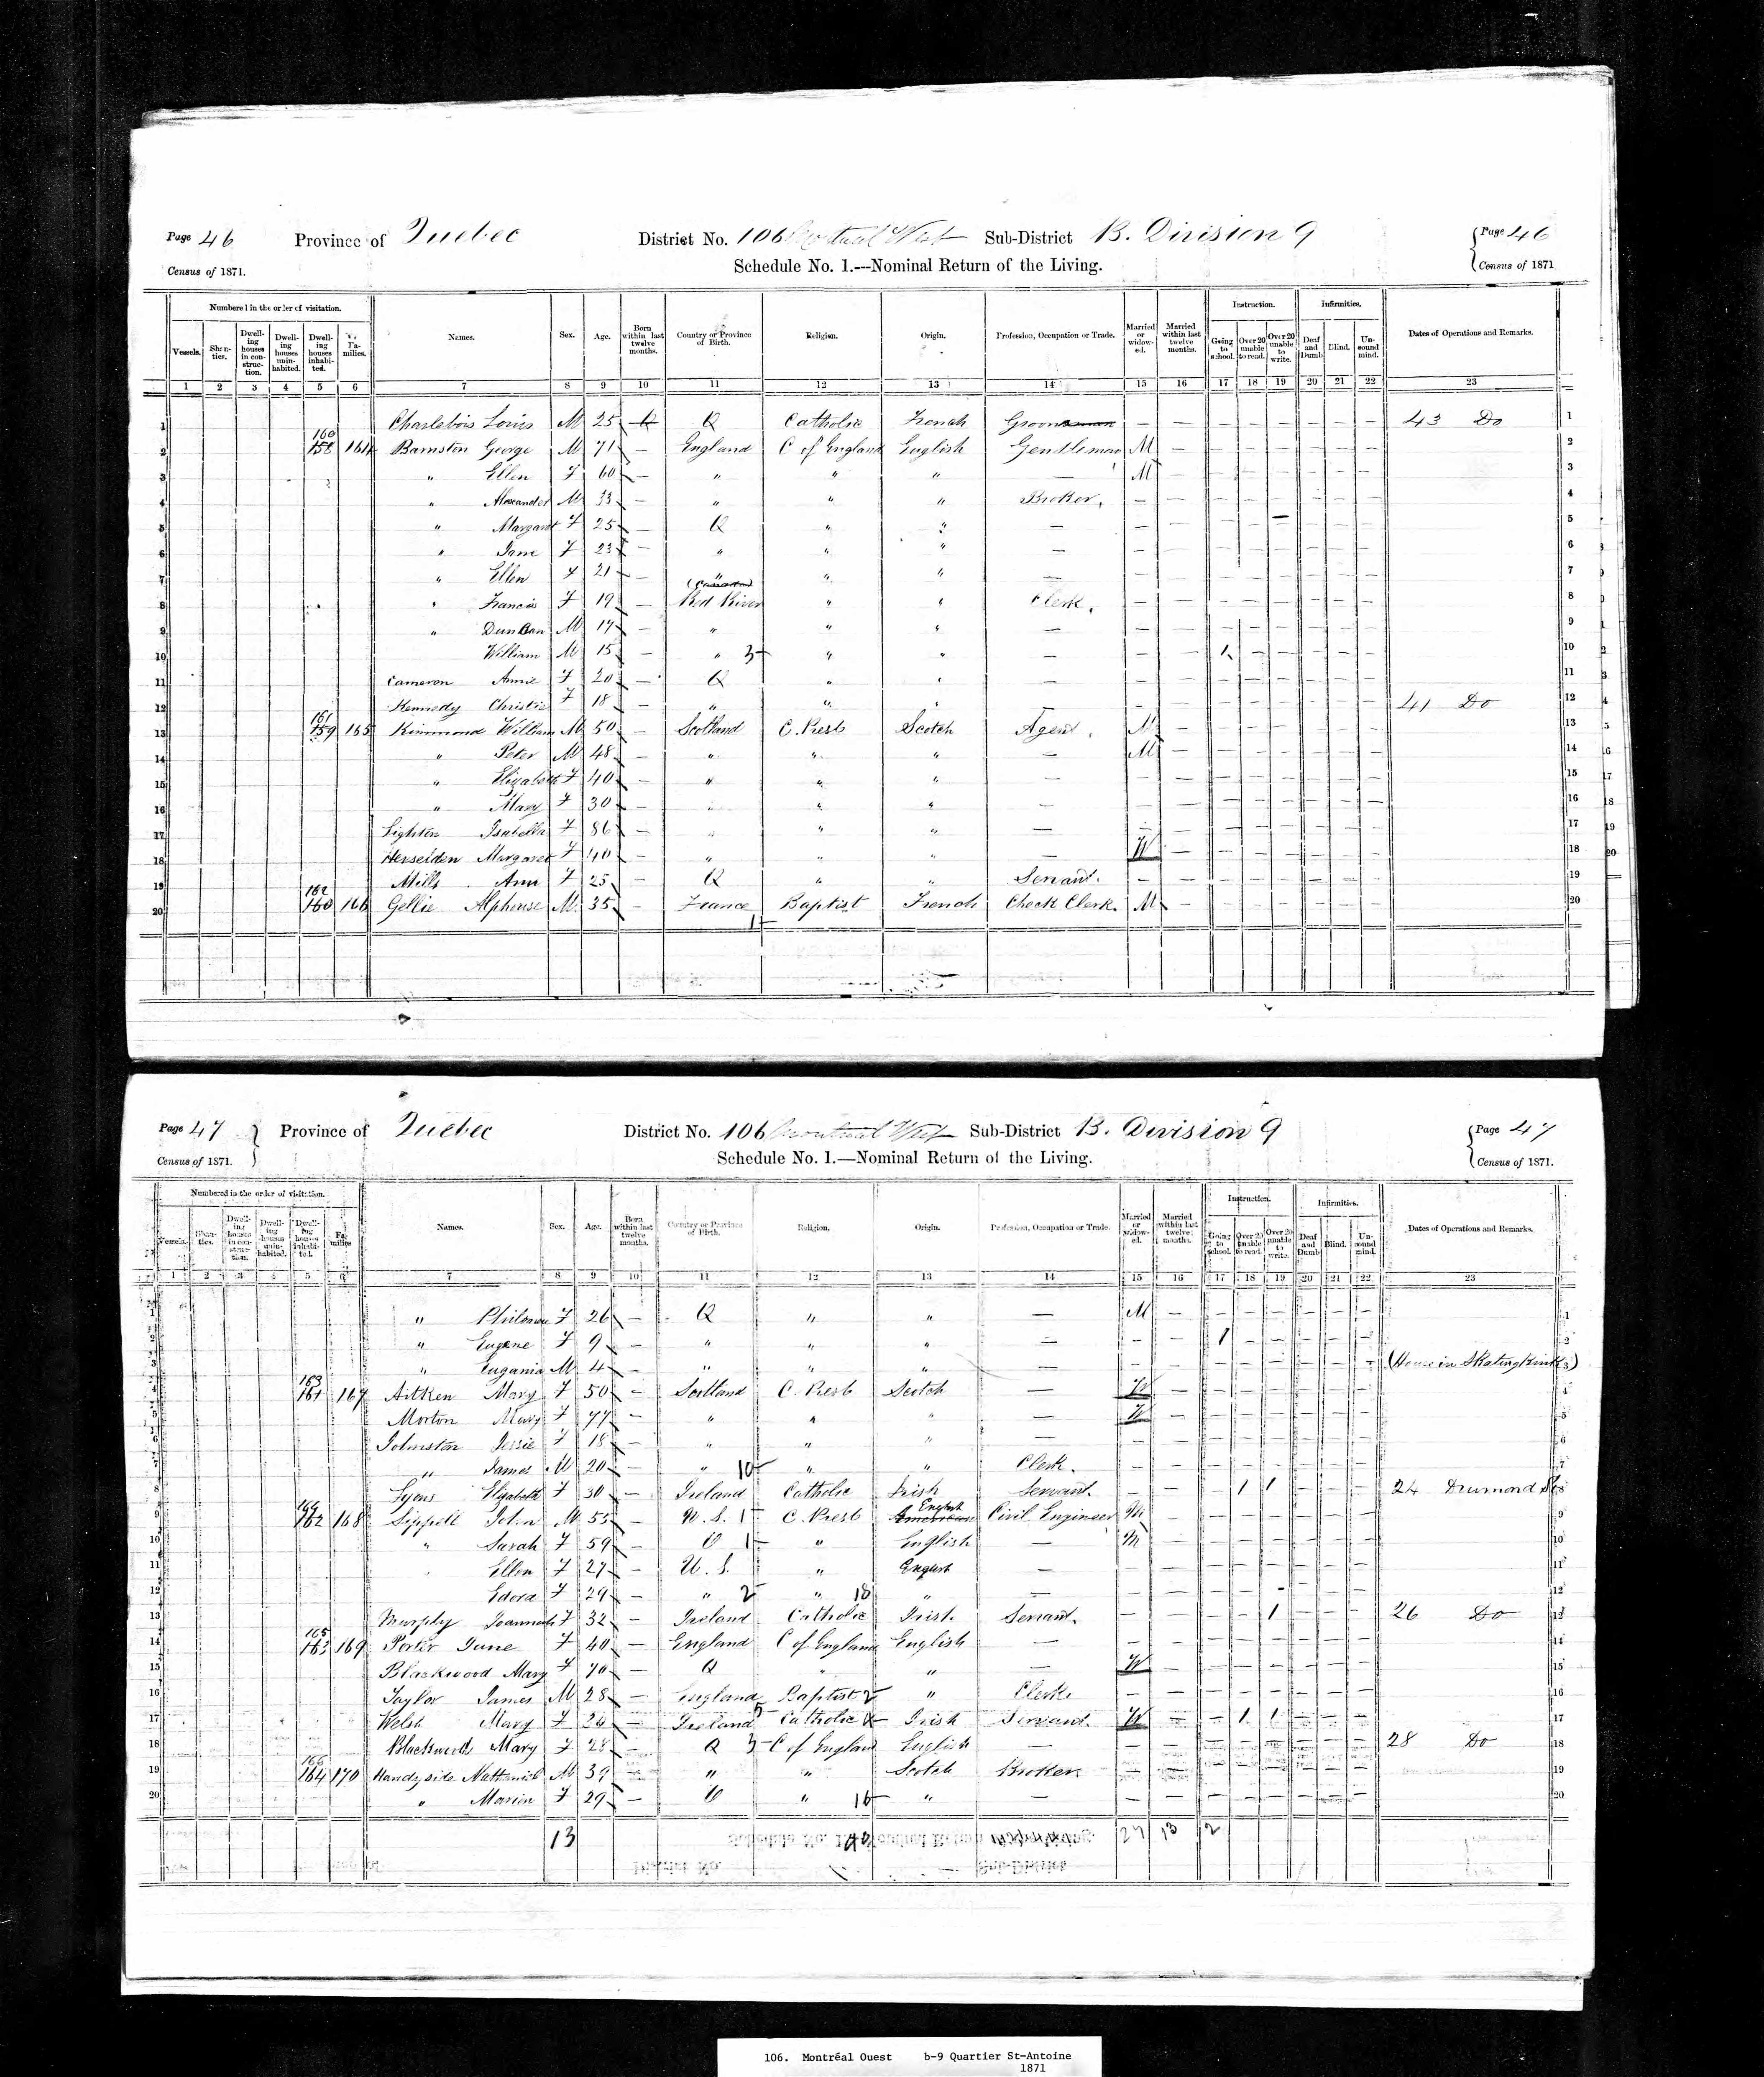 Page 46 Province of Quebec District No. 106 Montreal West Sub-District B. Division 9 Page 46
Census of 1871. Schedule No. 1.---Nominal Return of the Living. Census of 1871
Numbered in the order of visitation. Names. Sex. Age. Born within last twelve months. Country or Province of Birth. Religion. Origin. Profession, Occupation or Trade. Married or widowed. Married within last twelve months. Instruction. Infirmities. Dates of Operations and Remarks.
Vessels. Shanties. Dwelling houses in construction. Dwelling houses uninhabited. Dwelling houses inhabited. Families. Going to school. Over 20 unable to read. Over 20 unable to write. Deaf and Dumb. Blind. Unsound mind.
1 2 3 4 5 6 7 8 9 10 11 12 13 14 15 16 17 18 19 20 21 22 23
1 Charlebois Louis M 25 – Q Catholic French Groom – – – – – – – – 43 Do 1
2 160 158 164 Barnston George M 71 – England C of England English Gentleman M – – – – – – – 2
3 " Ellen F 60 – " " " – M – – – – – – – 3
4 " Alexander M 33 – " " " Broker. – – – – – – – – 4
5 " Margaret F 25 – Q " " – – – – – – – – – 5
6 " Jane F 23 – " " " – – – – – – – – – 6
7 " Ellen F 21 – " " " – – – – – – – – – 7
8 " Francis F 19 – Red River " " Clerk. – – – – – – – – 8
9 " Duncan M 17 – " " " – – – – – – – – – 9
10 William M 15 – " 3 " " – – – 1 – – – – – 10
11 Cameron Annie F 20 – Q " " – – – – – – – – – 11
12 Kennedy Christie F 18 – " " " – – – – – – – – – 41 Do 12
13 161 159 165 Kinmond William M 50 – Scotland C. Presb Scotch Agent. M – – – – – – – 13
14 " Peter M 48 – " " " – M – – – – – – – 14
15 " Elizabeth F 40 – " " " – – – – – – – – – 15
16 " Mary F 30 – " " " – – – – – – – – – 16
17 Lighton Isabella F 86 – " " " – – – – – – – – – 17
18 Margaret F 40 – " " " – W – – – – – – – 18
19 Mills Ann F 25 – Q " " Servant. – – – – – – – – 19
20 162 160 166 Gellie Alphonse M 35 – France Baptist French Check Clerk. M – – – – – – – 20
1
Page 47 Province of Quebec District No. 106 Montreal West Sub-District B. Division 9 Page 47
Census of 1871. Schedule No. 1.—Nominal Return of the Living. Census of 1871.
Numbered in the order of visitation. Names. Sex. Age. Born within last twelve months. Country or Province of Birth. Religion. Origin. Profession, Occupation or Trade. Married or widowed. Married within last twelve months. Instruction. Infirmities. Dates of Operations and Remarks.
Vessels. Shanties. Dwelling houses in construction. Dwelling houses uninhabited. Dwelling houses inhabited. Families Going to school. Over 20 unable to read. Over 20 unable to write. Deaf and Dumb. Blind. Unsound mind.
1 2 3 4 5 6 7 8 9 10 11 12 13 14 15 16 17 18 19 20 21 22 23
1 " F 26 – Q " " – M – – – – – – – 1
2 " Eugene F 9 – " " " – – – 1 – – – – – 2
3 " Eugania M 4 – " " " – – – – – – – – – (House in Skating Rink) 3
4 163 161 167 Aitken Mary F 50 – Scotland C. Presb Scotch – W – – – – – – – 4
5 Morton Mary F 77 – " " " – W – – – – – – – 5
6 Johnston Jessie F 18 – " " " – – – – – – – – – 6
7 " James M 20 – " 10 " " Clerk. – – – – – – – – 7
8 Lyons Elizabeth F 30 – Ireland Catholic Irish Servant. – – – 1 1 – – – 24 Drumond St 8
9 164 162 168 Sippell John M 55 – U.S. 1 C. Presb English Civil Engineer M – – – – – – – 9
10 " Sarah F 59 – O 1 " English – M – – – – – – – 10
11 Ellen F 27 – U.S. " English – – – – – – – – – 11
12 F 29 – " 2 " 18 " – – – – – – – – – 12
13 Murphy Joannah F 32 – Ireland Catholic Irish Servant. – – – – 1 – – – 26 Do 13
14 165 163 169 Porter June F 40 – England C of England English – – – – – – – – – 14
15 Blackwood Mary F 70 – Q " " – W – – – – – – – 15
16 Taylor James M 28 – England Baptist 2 " Clerk – – – – – – – – 16
17 Welsh Mary F 20 – Ireland Catholic Irish Servant. W – – 1 1 – – – 17
18 Blackwood Mary F 28 – Q 3 C of England English – – – – – – – – – 28 Do 18
19 166 164 170 Handyside Nathaniel M 39 – " " Scotch Broker – – – – – – – – 19
20 " Marion F 29 – O " 16 " – – – – – – – – – 20
13 27 13 12
106. Montréal Ouest b-9 Quartier St-Antoine
1871